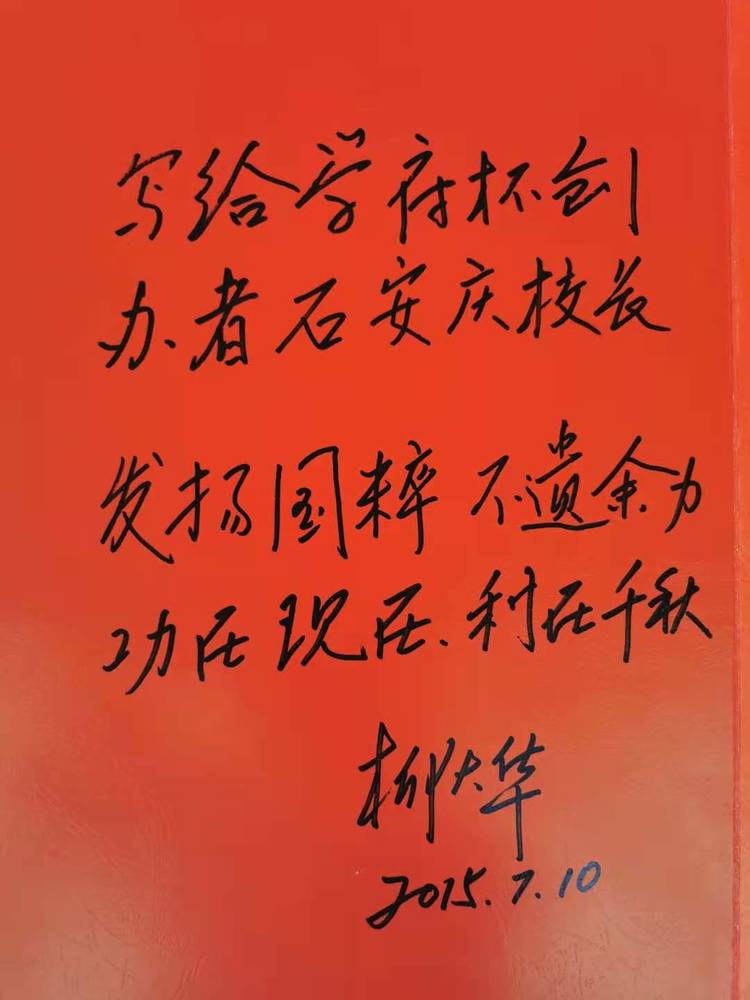 写给学府杯创
办者石安庆校长
发扬国粹 不遗余力
功在现在、利在千秋
柳大华
2015.7.10